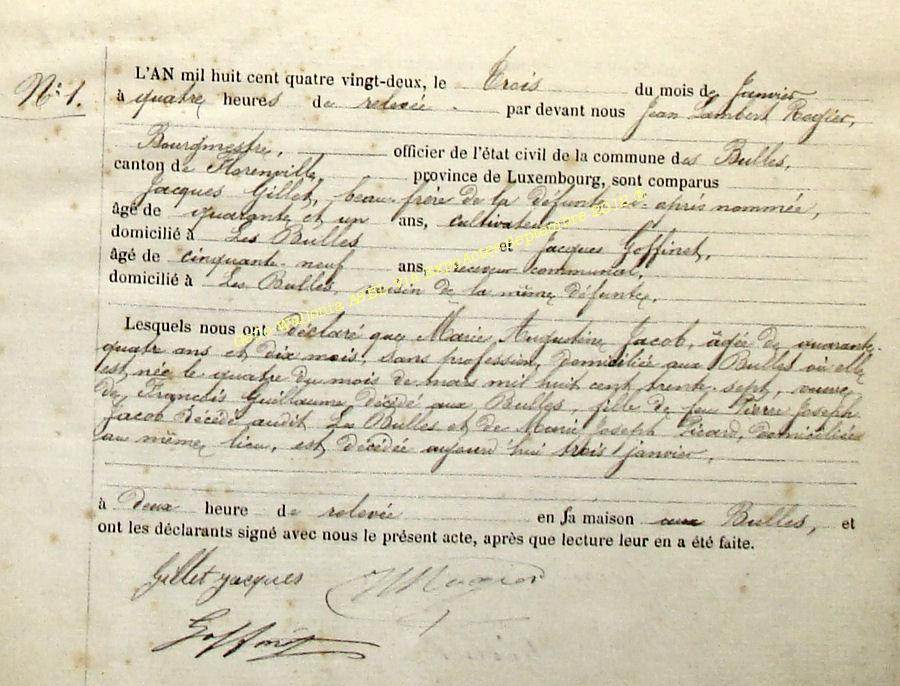 N° 1.
L'AN mil huit cent quatre vingt-deux, le Trois du mois de Janvier
à quatre heures de relevée par devant nous Jean Lambert Rogier,
Bourgmestre, officier de l'état civil de la commune des Bulles,
canton de Florenville, province de Luxembourg, sont comparus
Jacques Gillet, beau frère de la défunte ci-après nommée,
âgé de quarante et un ans, cultivateur
domicilié à Les Bulles et Jacques Goffinet,
âgé de cinquante-neuf ans, receveur communal,
domicilié à Les Bulles, voisin de la même défunte,
Lesquels nous ont déclaré que Marie Augustine Jacob, âgée de quarante
quatre ans et dix mois, sans profession, domiciliée aux Bulles où elle
est née le quatre du mois de mars mil huit cent trente sept, veuve
de François Guillaume décédé aux Bulles, fille de feu Pierre Joseph
Jacob décédé audit Les Bulles et de Marie Joseph Picard, domiciliée
au même lieu, est décédée aujourd'hui trois janvier,
à deux heure de relevée en sa maison aux Bulles, et
ont les déclarants signé avec nous le présent acte, après que lecture leur en a été faite.
Gillet Jacques
Goffinet